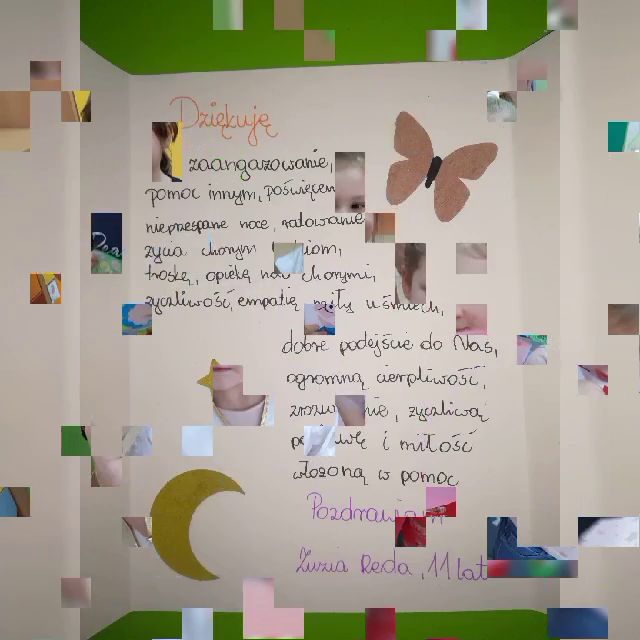 Dziękuję
zaangażowanie,
pomoc innym,
nieprzespane noce, ratowanie
życia chorym
troskę, opiekę nad chorymi,
życzliwość, empatię, uśmiech,
dobre podejście do Nas,
ogromną cierpliwość,
życzliwą
i miłość
włożoną w pomoc
Pozdrawiam
Zuzia Reda, 11 lat